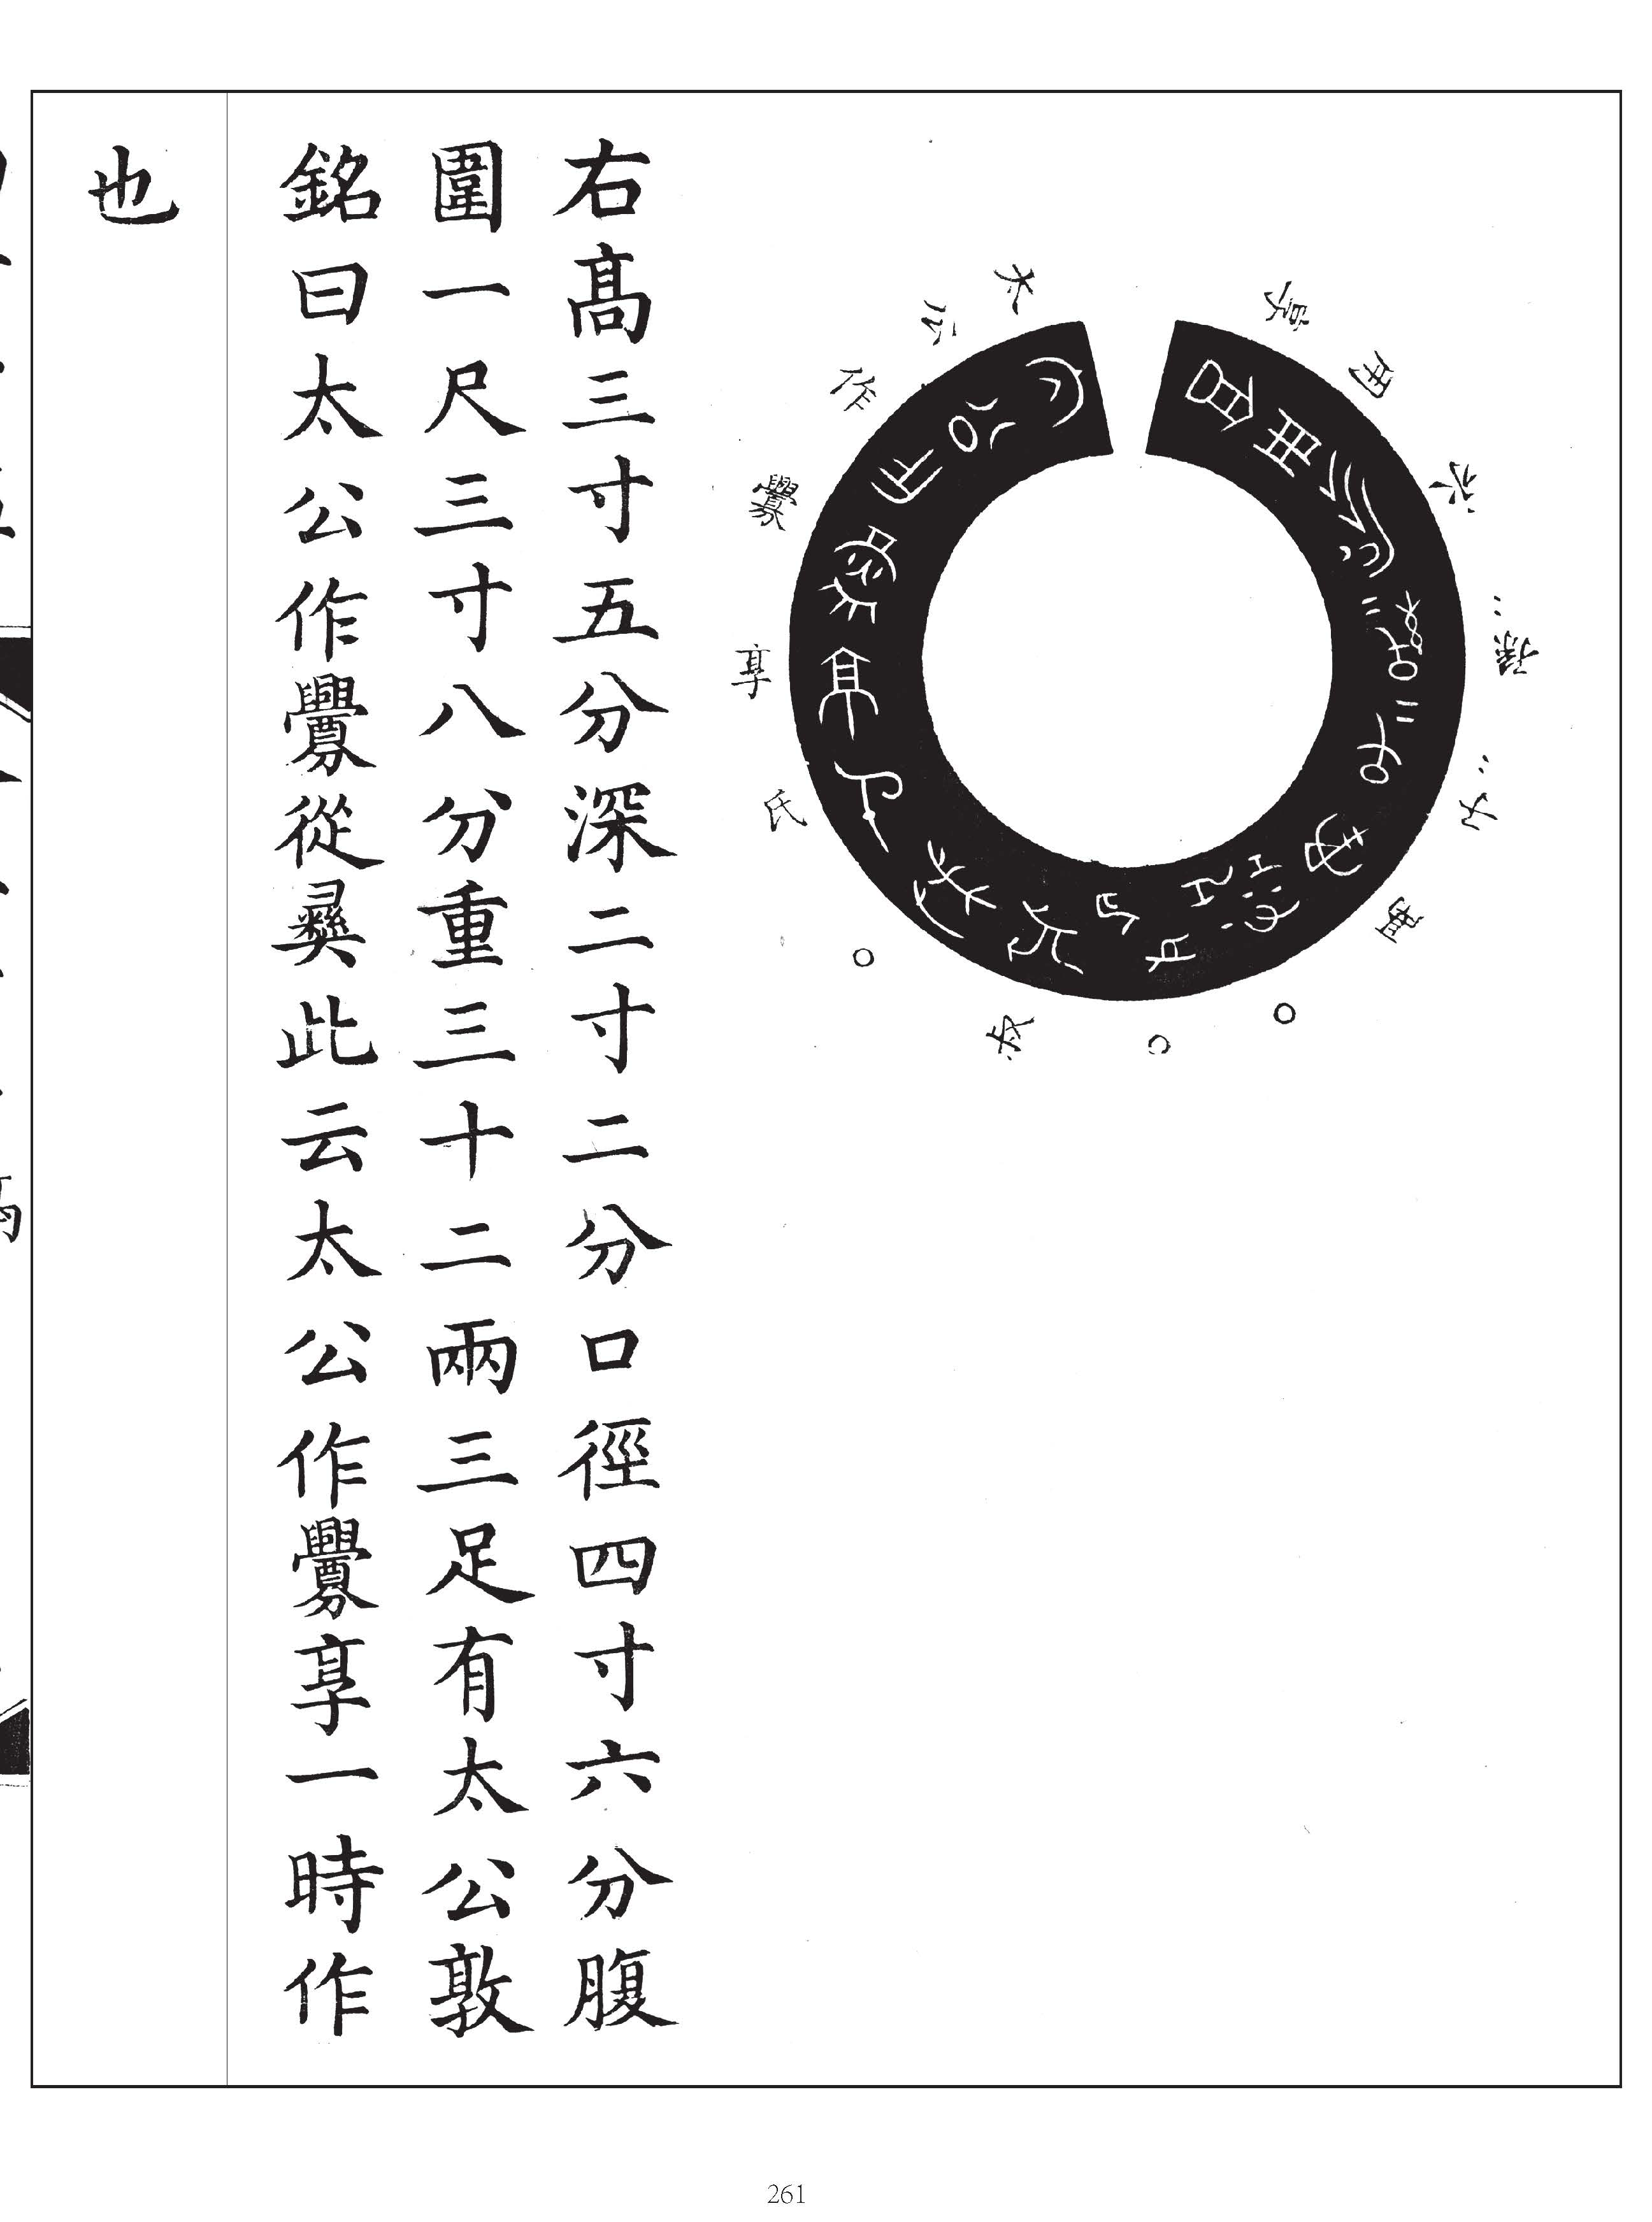 太公作釁享氏○○○萬子‥孫‥永用
右髙三寸五分深二寸二分口徑四寸六分腹
圍一尺三寸八分重三十二兩三足有太公敦
銘曰太公作釁從彝此云太公作釁享一時作
也
261